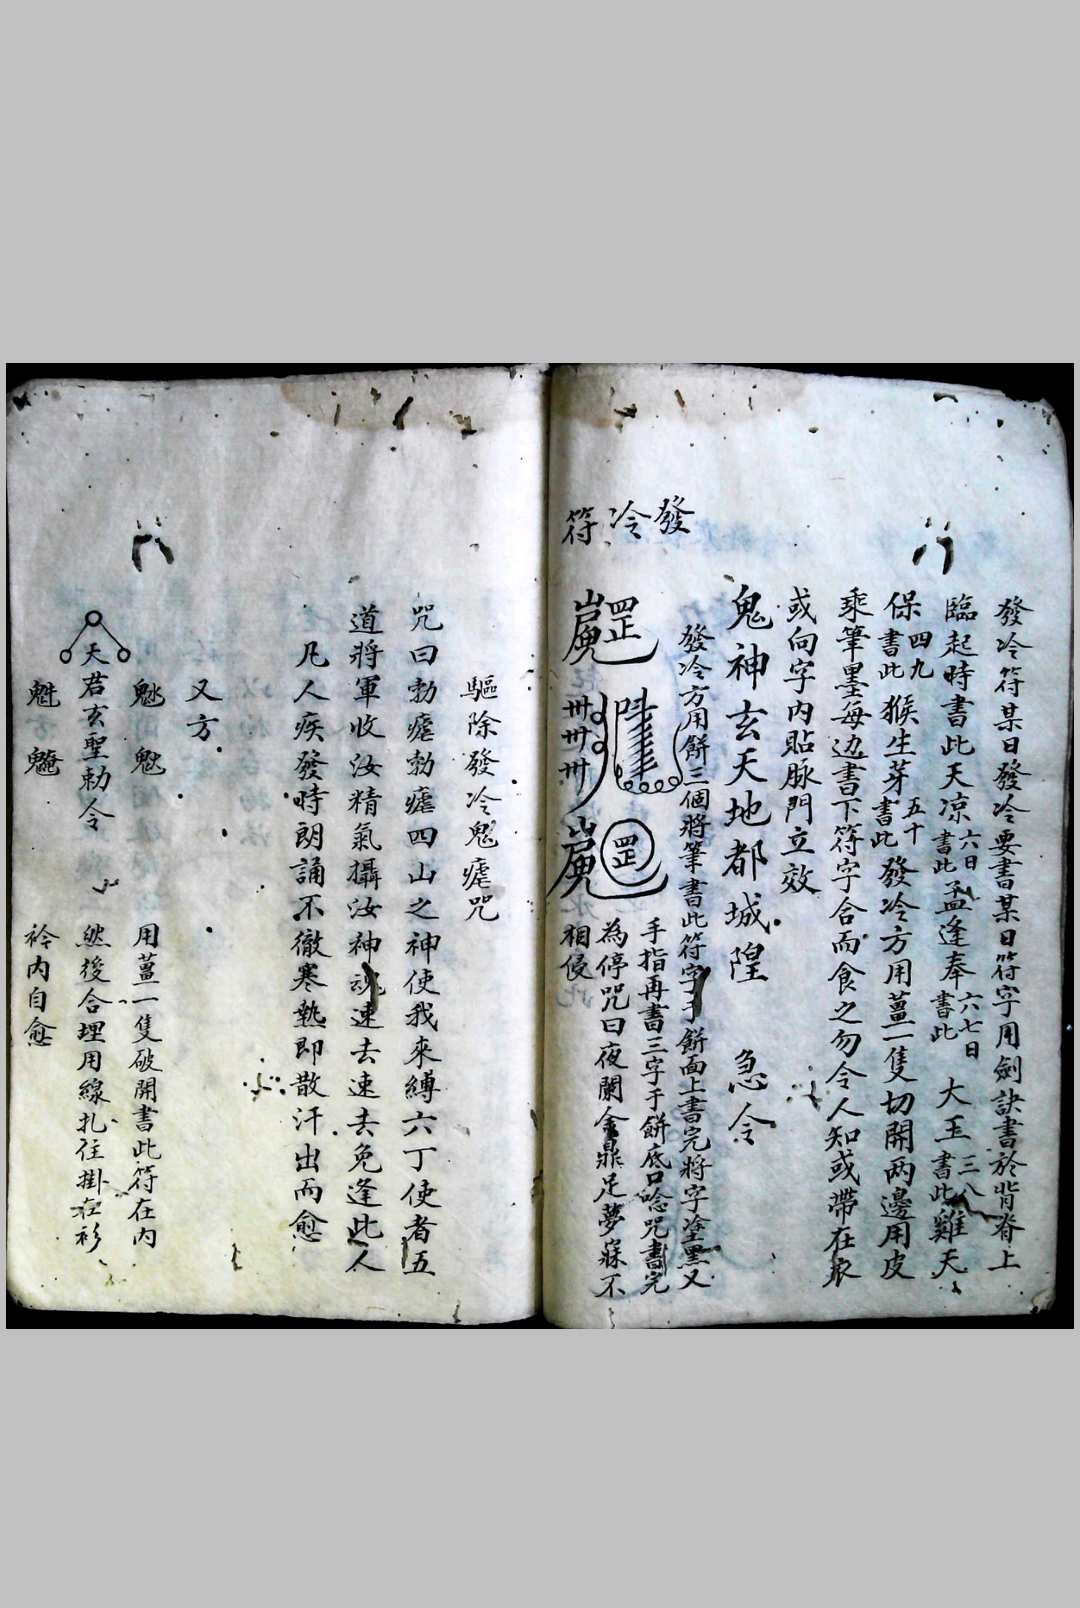 發冷符某日發冷要書某日符字用劍訣書於背脊上
臨起時書此天涼六日書此孟逢奉六七日書此大王三八書此雞天
保四九書此猴生芽五十書此發冷方用薑一隻切開两邊用皮
乘筆墨每边書下符字合而食之勿令人知或帶在衣
或向字内貼脉門立效
鬼神玄天地都城隍 急令
發冷方用餅三個將筆書此符字于餅面上書完將字塗黑又
手指再書三字于餅底口唸咒書完
為停咒曰夜闌金鼎足夢寐不
相侵
發冷符
罡
罡
驅除發冷鬼瘧咒
咒曰勃瘧勃瘧四山之神使我來縛六丁使者五
道將軍收汝精氣攝汝神魂速去速去免逢此人
凡人疾發時朗誦不徹寒熱即散汗出而愈
又方
用薑一隻破開書此符在内
天君玄聖勅令 然後合理用線扎住掛在衫
衿内自愈